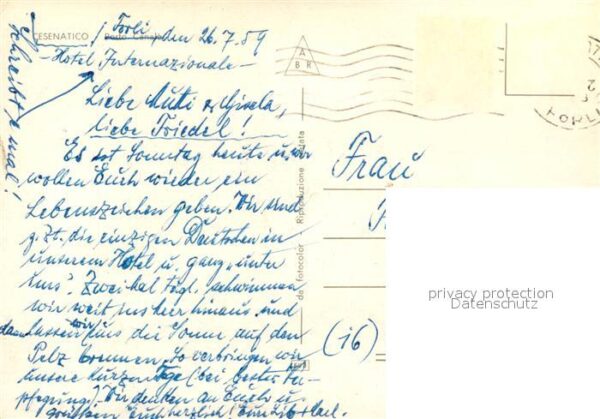 CESENATICO Porto Canale
j Forli, den 26.7.59
Hotel Internazionale –
Schreibt 'e mal!
Liebe Mutti & Gisela,
liebe Friedel!
Es ist Sonntag heute u. wir
wollen Euch wieder ein
Lebenszeichen geben. Wir sind
z. Zt. die einzigen Deutschen in
unserem Hotel u. ganz „unter
uns". Zweimal tägl. schwimmen
wir weit ins Meer hinaus und
dann lassen wir uns die Sonne auf den
Pelz brennen. So verbringen wir
unsere kurzen Tage (bei bester Ver-
pflegung). Wir denken an Euch u.
grüssen Euch herzlich! Eure
ABR
FORLI
da fotocolor Riproduzione vietata
Frau
(16)
privacy protection
Datenschutz